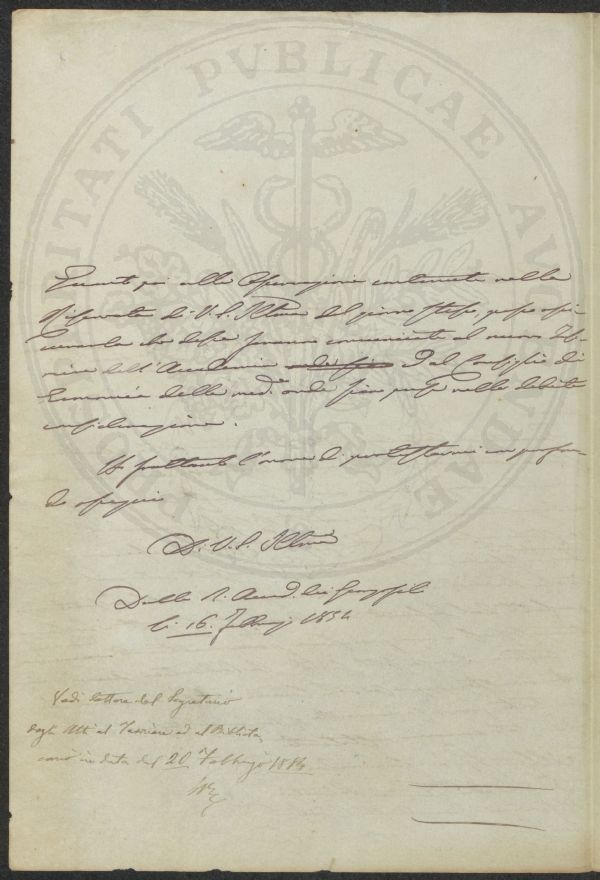 PROSPERITATI PVBLICAE AVGENDAE
Quanto poi alle Osservazioni contenute nella
di V. S. Illma del giorno stesso, posso
che desse saranno comunicate al nuovo
dell' Accademia ed al Consiglio di
Economia della med. onde sian prese nella debita
considerazione.
Ho pertanto l'onore di protestarmi con profon-
do ossequio
Di V. S. Illma
Dalla R. Accad. dei Georgofili
li 16. Febbrajo 1854
Vedi lettere del Segretario
degli Atti al Tesoriere ed al Bibliote-
cario in data del 20 Febbrajo 1854